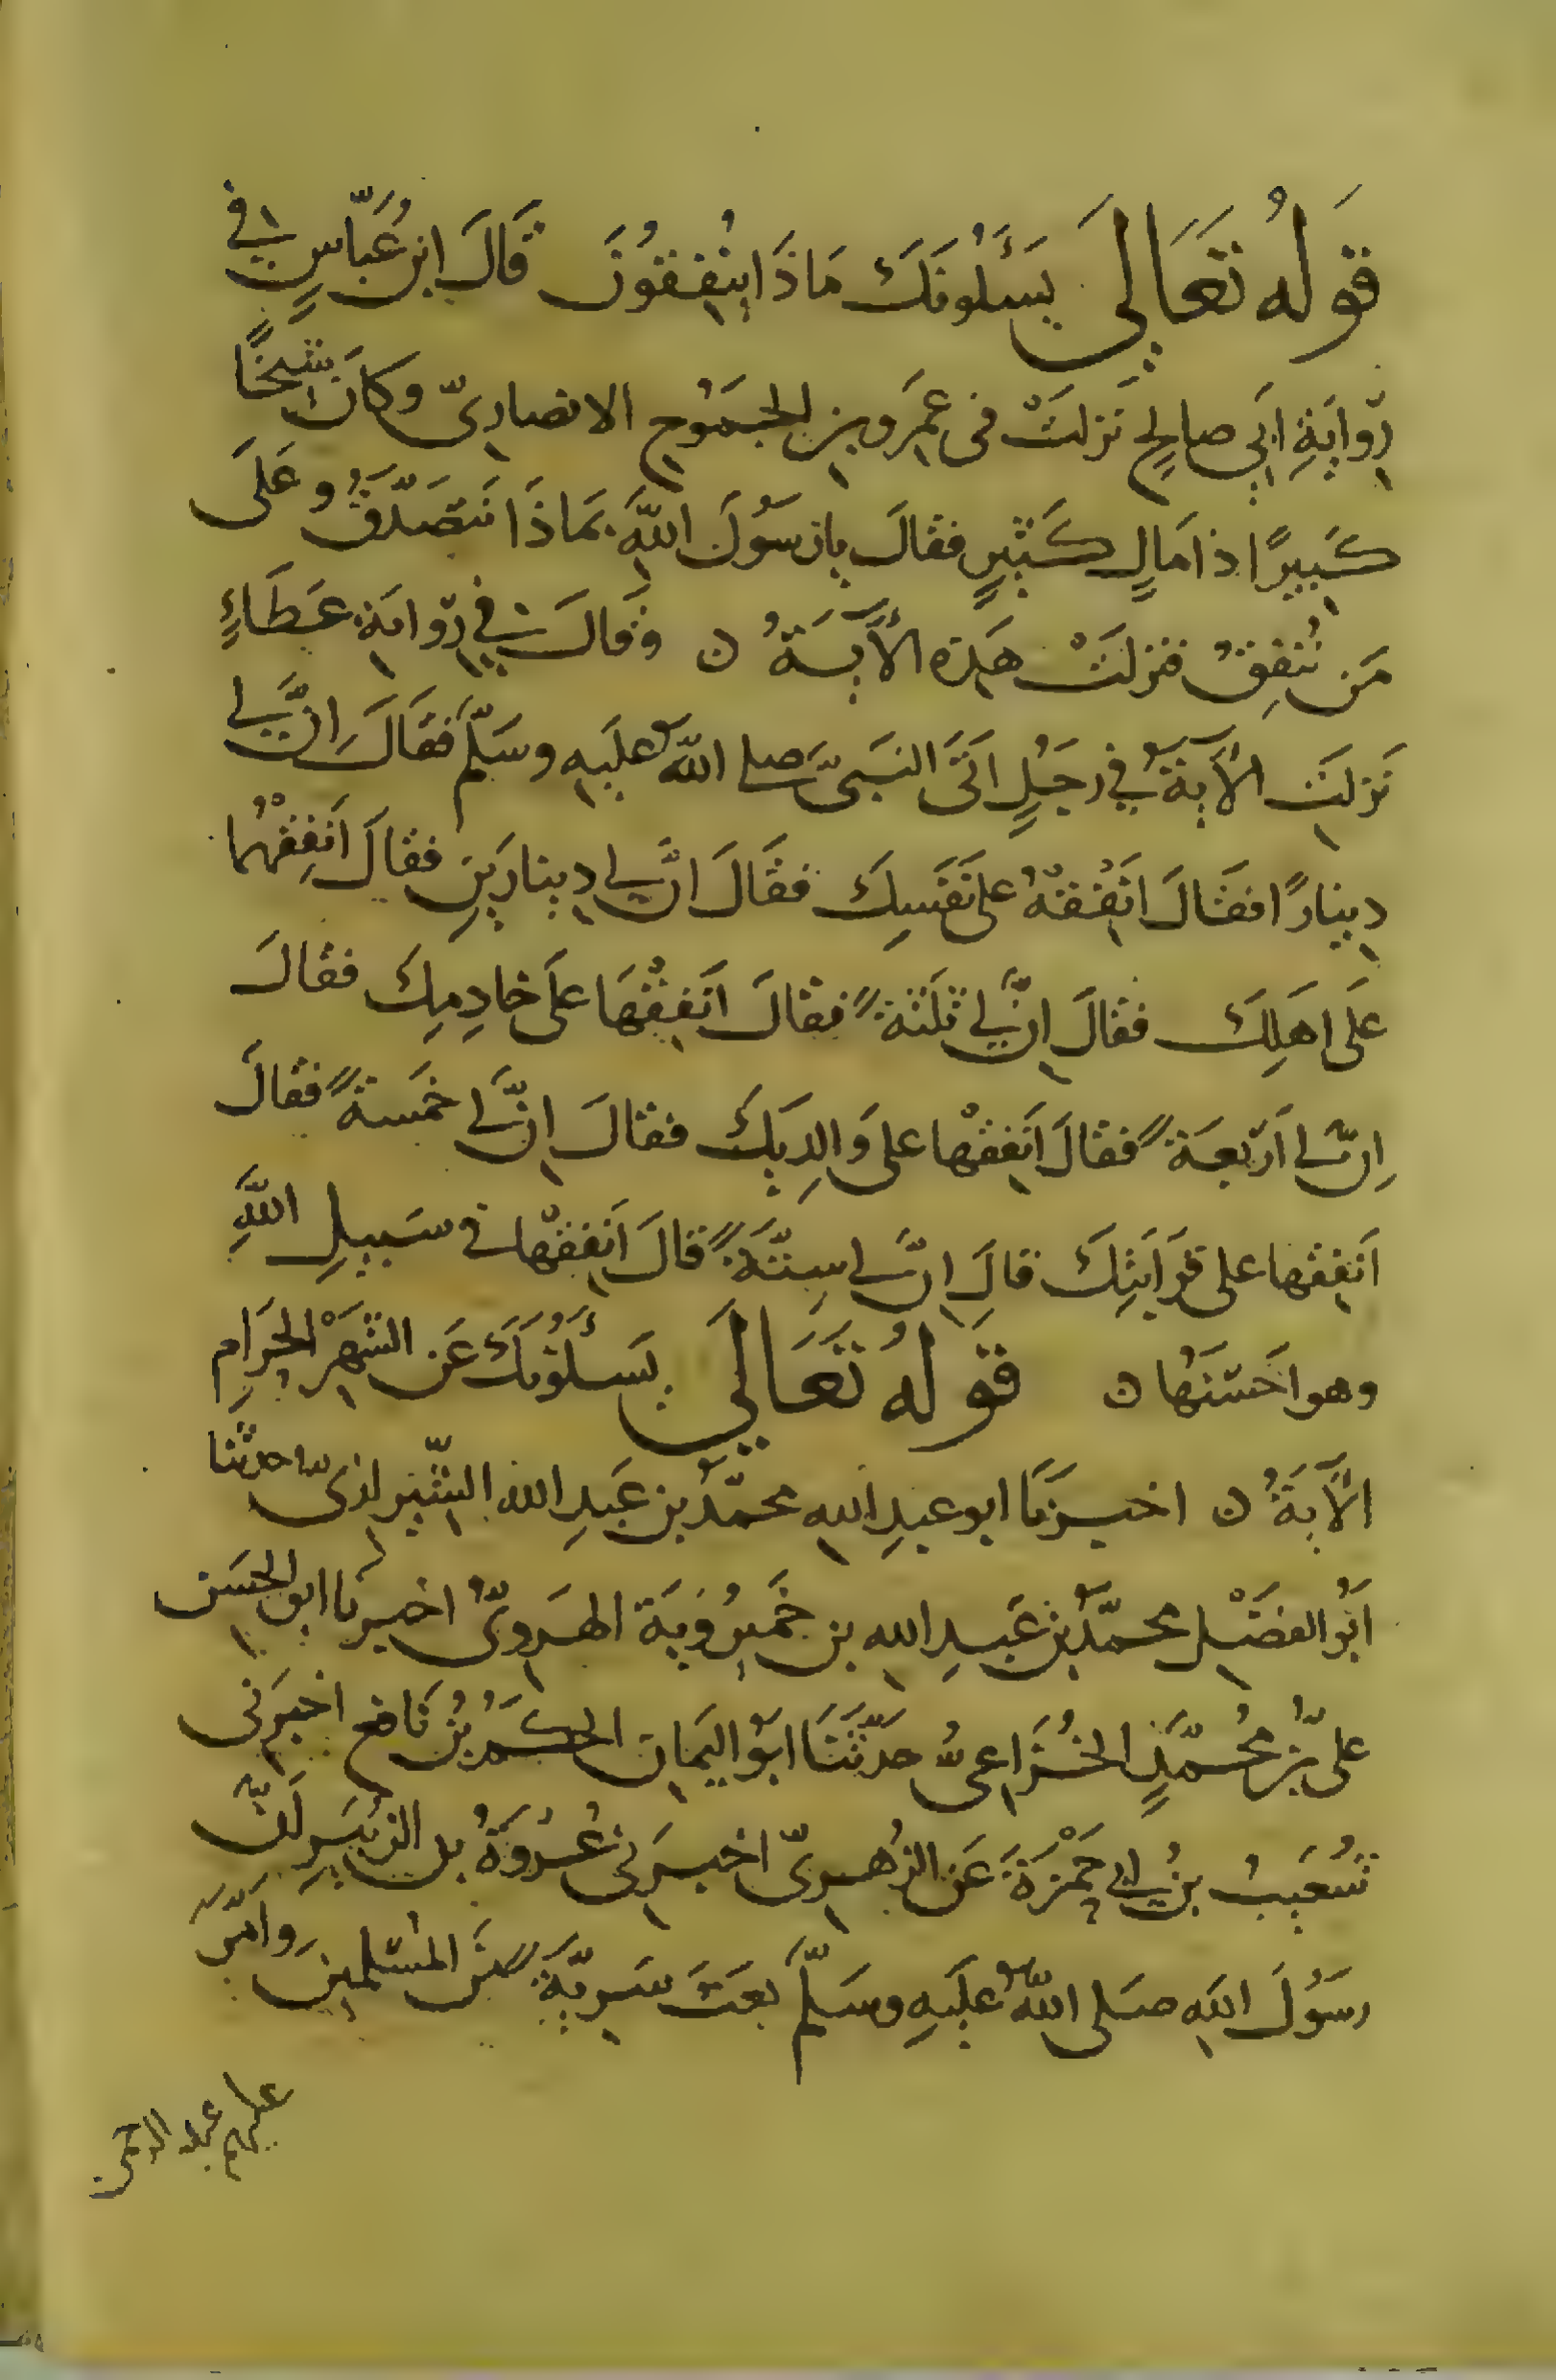 قَولُهُ تَعَالَى يَسَئَلُونَكَ مَاذَا يُنْفِقُونَ قَالَ ابن عَبّاسٍ فى
رِوايَةِ ابَى صالحٍ نَزلَتْ فى عَمَرو بن الجَمَوُحِ الانصارىّ وكانَ شَيخًا
كَبيرًا ذا مَالٍ كَثيرٍ فقالَ يا رسَوُلَ اللهَ بمَاذَا نتَصَدّقُ وعَلَى
مَن نُنفِقُ فنزلَتْ هَذه الآيَةُ ن وَقالَ فى رِوايَةِ عَطَاءٍ
نَزلَتْ الآيَةُ فى رجَلٍ اَتَى النبَىَّ صلى اللهُ علَيهِ وسَلّمَ فقَالَ اِنَّ لى
دينارًا فقَالَ اَنفقْهُ على نَفسِكَ فقَالَ انَّ لى دينارَينِ فقَالَ اَنفِقْهُما
عَلَى اهَلِكَ فقَالَ اِنَّ لى ثلَثةً فقَالَ اَنفِقْهَا عَلَى خادِمِكَ فقالَ
اِنّ لى اَرْبعَةً فقَالَ اَنفِقْها على وَالدِيَكَ فقَالَ اِنَّ لى خمَسةً فقالَ
اَنفِقْها على قَرابَتِكَ قالَ اِنّ لى سِتّةً قالَ اَنفِقْها فى سَبيلِ اللهِ
وهو احَسَنُها ن قَولُهُ تَعَالَى يَسَئَلُوُنَكَ عَن الشّهَرْ الحَرَامِ
الآيَةُ ن اخبَرنَا ابو عبدِ الله محمّدُ بن عَبدِ الله الشّيرازىّ حدثنا
ابَوُ الفضَلْ محمّدُ بن عَبدِ الله بن خَميرُويَة الهَروىُّ اخبرنا ابو الحسَن
علىّ بنُ محُمَّدٍ الخُزَاعىُّ حَدّثنَا ابَوُ اليَمان الحكَمُ بنُ نَافع اخبَرنى
شُعَيبُ بنُ ابى حَمْزةَ عَن الزُهرىّ اخبرَنى عُروَةُ بن الزُبيَرِ اَنّ
رسَوُلَ الله صَلى اللهُ عليَهِ وسَلّمَ بعَثَ سَريّةً مِنَ المُسْلمينَ وامّرَ
عليهم عبد الرحمن